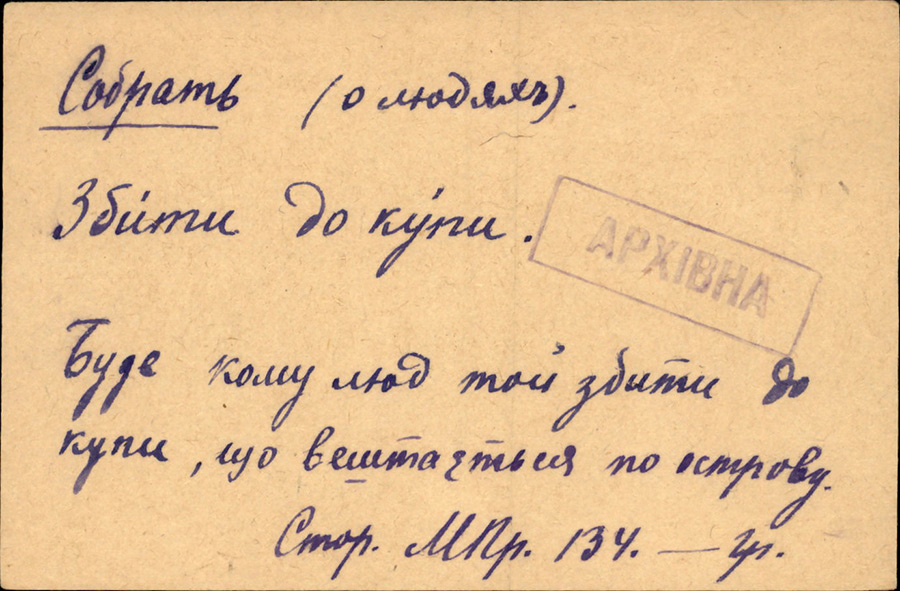 Собрать (о людяхъ).
Збíти до кýпи.
АРХІВНА
Буде кому люд той збити до
купи, що вештаєтьця по острову.
Стор. МПр. 134. —